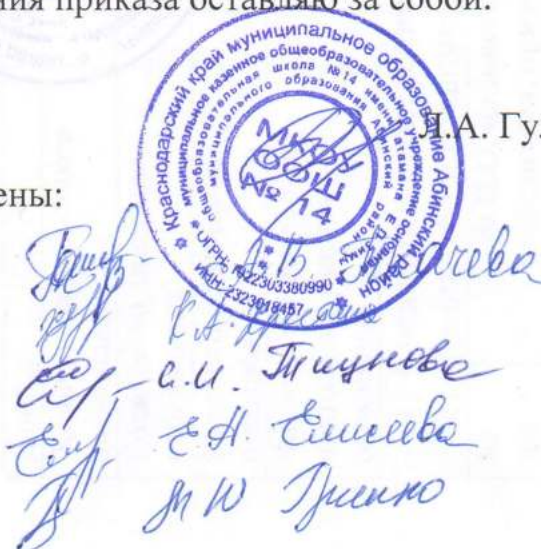 ния приказа оставляю за собой.
Краснодарский край муниципальное образование Абинский район
муниципальное казенное общеобразовательное учреждение основная
общеобразовательная школа №14 имени атамана
муниципального образования Абинский район
ОГРН: 1022303380990
ИНН: 2323018457
МКОУ
ООШ
№ 14
Л.А. Гу
ены:
А.В.
К.А.
С.И. Тицнова
Е.Н. Елисеева
М Ю